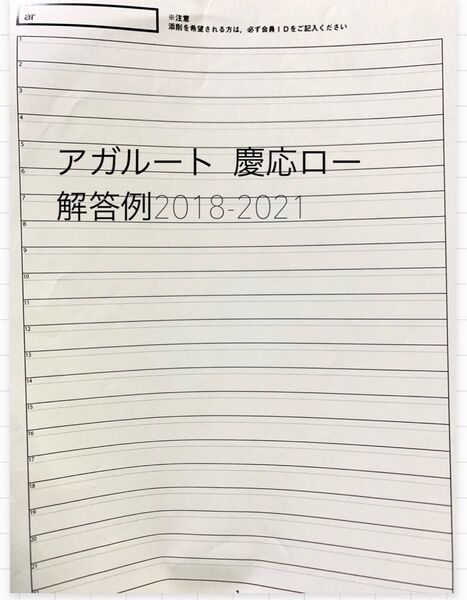 ar
※注意
添削を希望される方は，必ず会員IDをご記入ください
1
2
3
4
5
アガルート 慶応ロー
6
7
解答例2018-2021
8
9
10
11
12
13
14
15
16
17
18
19
20
21